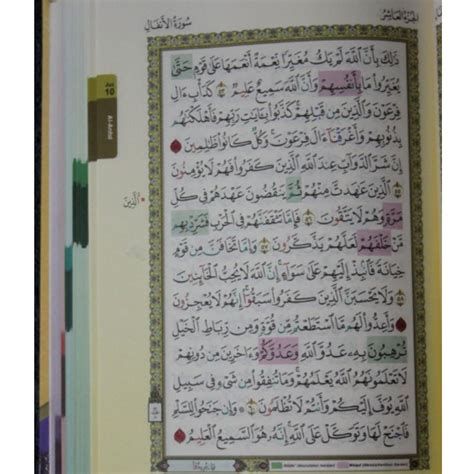 الجزء العاشر
سورة الأنفال
ذَٰلِكَ بِأَنَّ ٱللَّهَ لَمْ يَكُ مُغَيِّرًا نِّعْمَةً أَنْعَمَهَا عَلَىٰ قَوْمٍ حَتَّىٰ
يُغَيِّرُوا۟ مَا بِأَنفُسِهِمْ وَأَنَّ ٱللَّهَ سَمِيعٌ عَلِيمٌ كَدَأْبِ ءَالِ
فِرْعَوْنَ وَٱلَّذِينَ مِن قَبْلِهِمْ كَذَّبُوا۟ بِـَٔايَٰتِ رَبِّهِمْ فَأَهْلَكْنَٰهُم
بِذُنُوبِهِمْ وَأَغْرَقْنَآ ءَالَ فِرْعَوْنَ وَكُلٌّ كَانُوا۟ ظَٰلِمِينَ
إِنَّ شَرَّ ٱلدَّوَآبِّ عِندَ ٱللَّهِ ٱلَّذِينَ كَفَرُوا۟ فَهُمْ لَا يُؤْمِنُونَ
ٱلَّذِينَ عَٰهَدتَّ مِنْهُمْ ثُمَّ يَنقُضُونَ عَهْدَهُمْ فِى كُلِّ
مَرَّةٍ وَهُمْ لَا يَتَّقُونَ فَإِمَّا تَثْقَفَنَّهُمْ فِى ٱلْحَرْبِ فَشَرِّدْ بِهِم
مَّنْ خَلْفَهُمْ لَعَلَّهُمْ يَذَّكَّرُونَ وَإِمَّا تَخَافَنَّ مِن قَوْمٍ
خِيَانَةً فَٱنۢبِذْ إِلَيْهِمْ عَلَىٰ سَوَآءٍ إِنَّ ٱللَّهَ لَا يُحِبُّ ٱلْخَآئِنِينَ
وَلَا يَحْسَبَنَّ ٱلَّذِينَ كَفَرُوا۟ سَبَقُوٓا۟ إِنَّهُمْ لَا يُعْجِزُونَ
وَأَعِدُّوا۟ لَهُم مَّا ٱسْتَطَعْتُم مِّن قُوَّةٍ وَمِن رِّبَاطِ ٱلْخَيْلِ
تُرْهِبُونَ بِهِۦ عَدُوَّ ٱللَّهِ وَعَدُوَّكُمْ وَءَاخَرِينَ مِن دُونِهِمْ
لَا تَعْلَمُونَهُمُ ٱللَّهُ يَعْلَمُهُمْ وَمَا تُنفِقُوا۟ مِن شَىْءٍ فِى سَبِيلِ
ٱللَّهِ يُوَفَّ إِلَيْكُمْ وَأَنتُمْ لَا تُظْلَمُونَ وَإِن جَنَحُوا۟ لِلسَّلْمِ
فَٱجْنَحْ لَهَا وَتَوَكَّلْ عَلَى ٱللَّهِ إِنَّهُۥ هُوَ ٱلسَّمِيعُ ٱلْعَلِيمُ
10
Al-Anfal